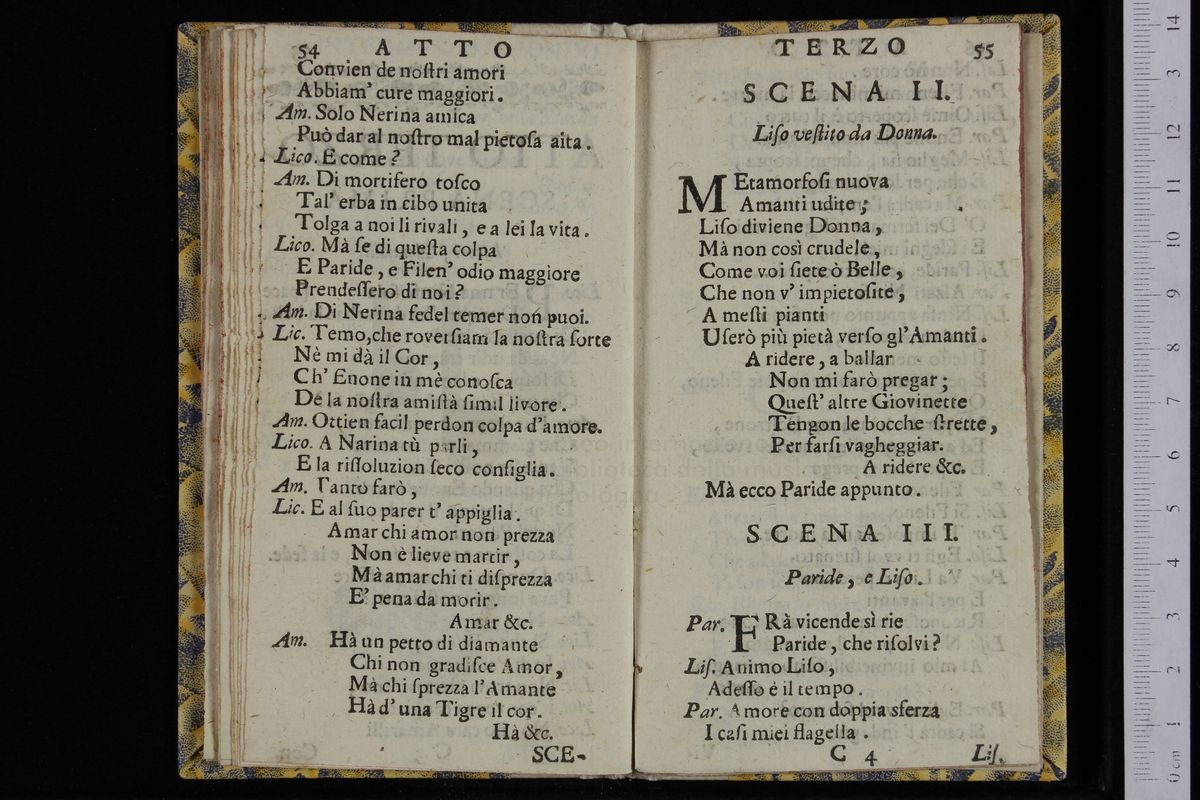 54 ATTO
Convien de noſtri amori
Abbiam' cure maggiori.
Am. Solo Nerina amica
Può dar al noſtro mal pietoſa aita.
Lico. E come?
Am. Di mortifero toſco
Tal' erba in cibo unita
Tolga a noi li rivali, e a lei la vita.
Lico. Mà ſe di queſta colpa
E Paride, e Filen' odio maggiore
Prendeſſero di noi?
Am. Di Nerina fedel temer non puoi.
Lic. Temo, che roverſiam la noſtra ſorte
Nè mi dà il Cor,
Ch' Enone in mè conoſca
De la noſtra amiſtà ſimil livore.
Am. Ottien facil perdon colpa d'amore.
Lico. A Narina tù parli,
E la riſſoluzion ſeco conſiglia.
Am. Tanto farò,
Lic. E al ſuo parer t' appiglia.
Amar chi amor non prezza
Non è lieve martir,
Mà amar chi ti diſprezza
E' pena da morir.
Amar &c.
Am. Hà un petto di diamante
Chi non gradiſce Amor,
Mà chi ſprezza l'Amante
Hà d' una Tigre il cor.
Hà &c.
SCE-
TERZO 55
SCENA II.
Liſo veſtito da Donna.
MEtamorfoſi nuova
Amanti udite;
Liſo diviene Donna,
Mà non così crudele,
Come voi ſiete ò Belle,
Che non v' impietoſite,
A meſti pianti
Uſerò più pietà verſo gl'Amanti.
A ridere, a ballar
Non mi farò pregar;
Queſt' altre Giovinette
Tengon le bocche ſtrette,
Per farſi vagheggiar.
A ridere &c.
Mà ecco Paride appunto.
SCENA III.
Paride, e Liſo.
Par. FRà vicende sì rie
Paride, che riſolvi?
Liſ. Animo Liſo,
Adeſſo è il tempo.
Par. Amore con doppia sferza
I caſi miei flagella.
C 4 Liſ.